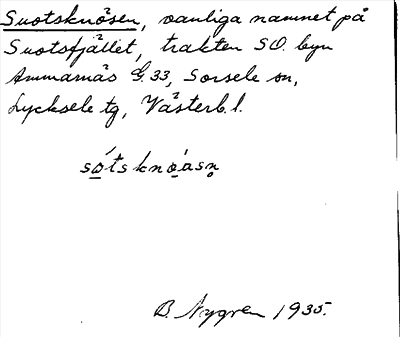 Suotsknösen, vanliga namnet på
Suotsfjället, trakten SO. byn
Ammarnäs G. 33, Sorsele sn,
Lycksele tg, Västerb. l.
só̲tskno̲àsn̥
B. Nygren 1935.